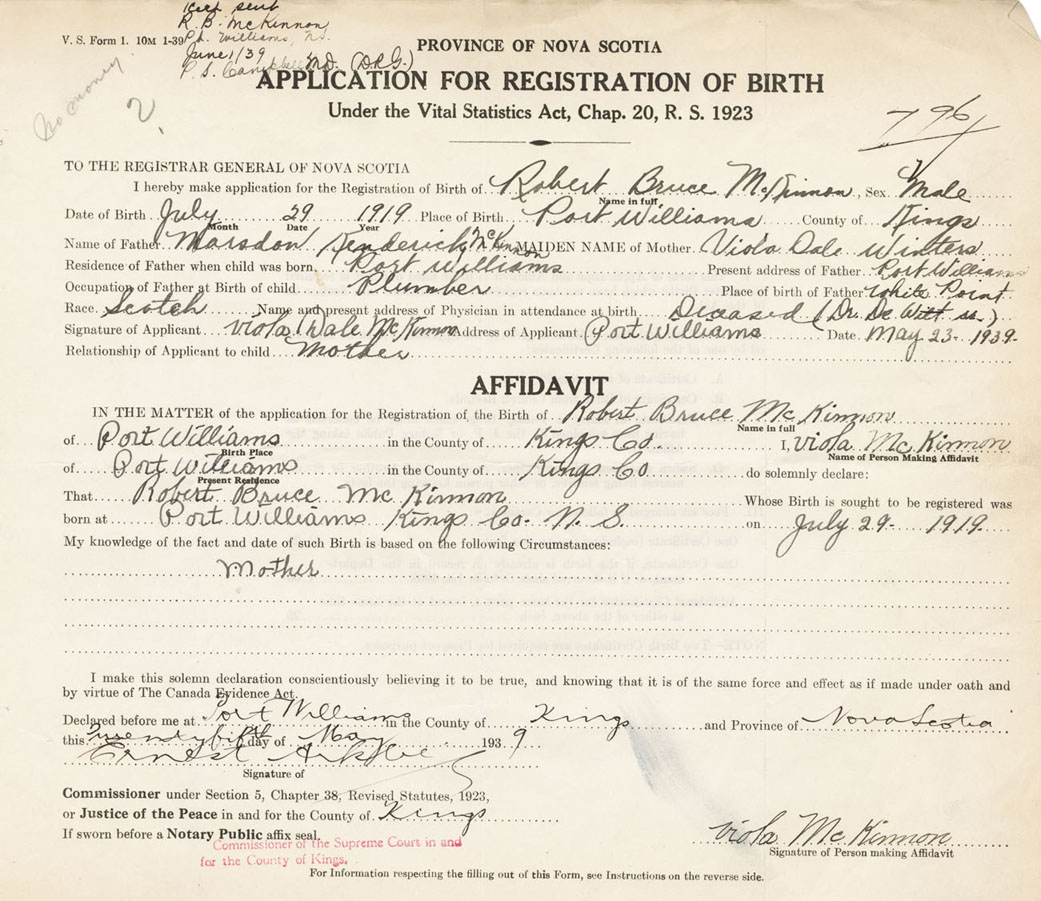 1 cert sent
R. B. McKinnon
V. S. Form 1. 10M 1-39 Pt. Williams, N.S.
June 1/39
P. S. Campbell MD. (D.R.G.)
No money
2.
PROVINCE OF NOVA SCOTIA
APPLICATION FOR REGISTRATION OF BIRTH
Under the Vital Statistics Act, Chap. 20, R. S. 1923
796
TO THE REGISTRAR GENERAL OF NOVA SCOTIA
I hereby make application for the Registration of Birth of Robert Bruce McKinnon, Sex Male
Name in full
Date of Birth July 29 1919 Place of Birth Port Williams County of Kings
Month Date Year
Name of Father Marsdon Kenderick McKinnon MAIDEN NAME of Mother Viola Dale Winters
Residence of Father when child was born Port Williams Present address of Father Port Williams
Occupation of Father at Birth of child Plumber Place of birth of Father White Point
Race Scotch Name and present address of Physician in attendance at birth Deceased (Dr. De Witt sr.)
Signature of Applicant Viola Dale McKinnon Address of Applicant Port Williams Date May 23 - 1939 -
Relationship of Applicant to child Mother
AFFIDAVIT
IN THE MATTER of the application for the Registration of the Birth of Robert Bruce McKinnon
Name in full
of Port Williams in the County of Kings Co I, Viola McKinnon
Birth Place Name of Person Making Affidavit
of Port Williams in the County of Kings Co do solemnly declare:
Present Residence
That Robert Bruce McKinnon Whose Birth is sought to be registered was
born at Port Williams Kings Co. N. S. on July 29 - 1919
My knowledge of the fact and date of such Birth is based on the following Circumstances:
Mother
I make this solemn declaration conscientiously believing it to be true, and knowing that it is of the same force and effect as if made under oath and
by virtue of The Canada Evidence Act.
Declared before me at Port Williams in the County of Kings and Province of Nova Scotia
this twenty fifth day of May 1939
Ernest
Signature of
Commissioner under Section 5, Chapter 38, Revised Statutes, 1923,
or Justice of the Peace in and for the County of Kings
If sworn before a Notary Public affix seal.
Commissioner of the Supreme Court in and
for the County of Kings.
Viola McKinnon
Signature of Person making Affidavit
For Information respecting the filling out of this Form, see Instructions on the reverse side.